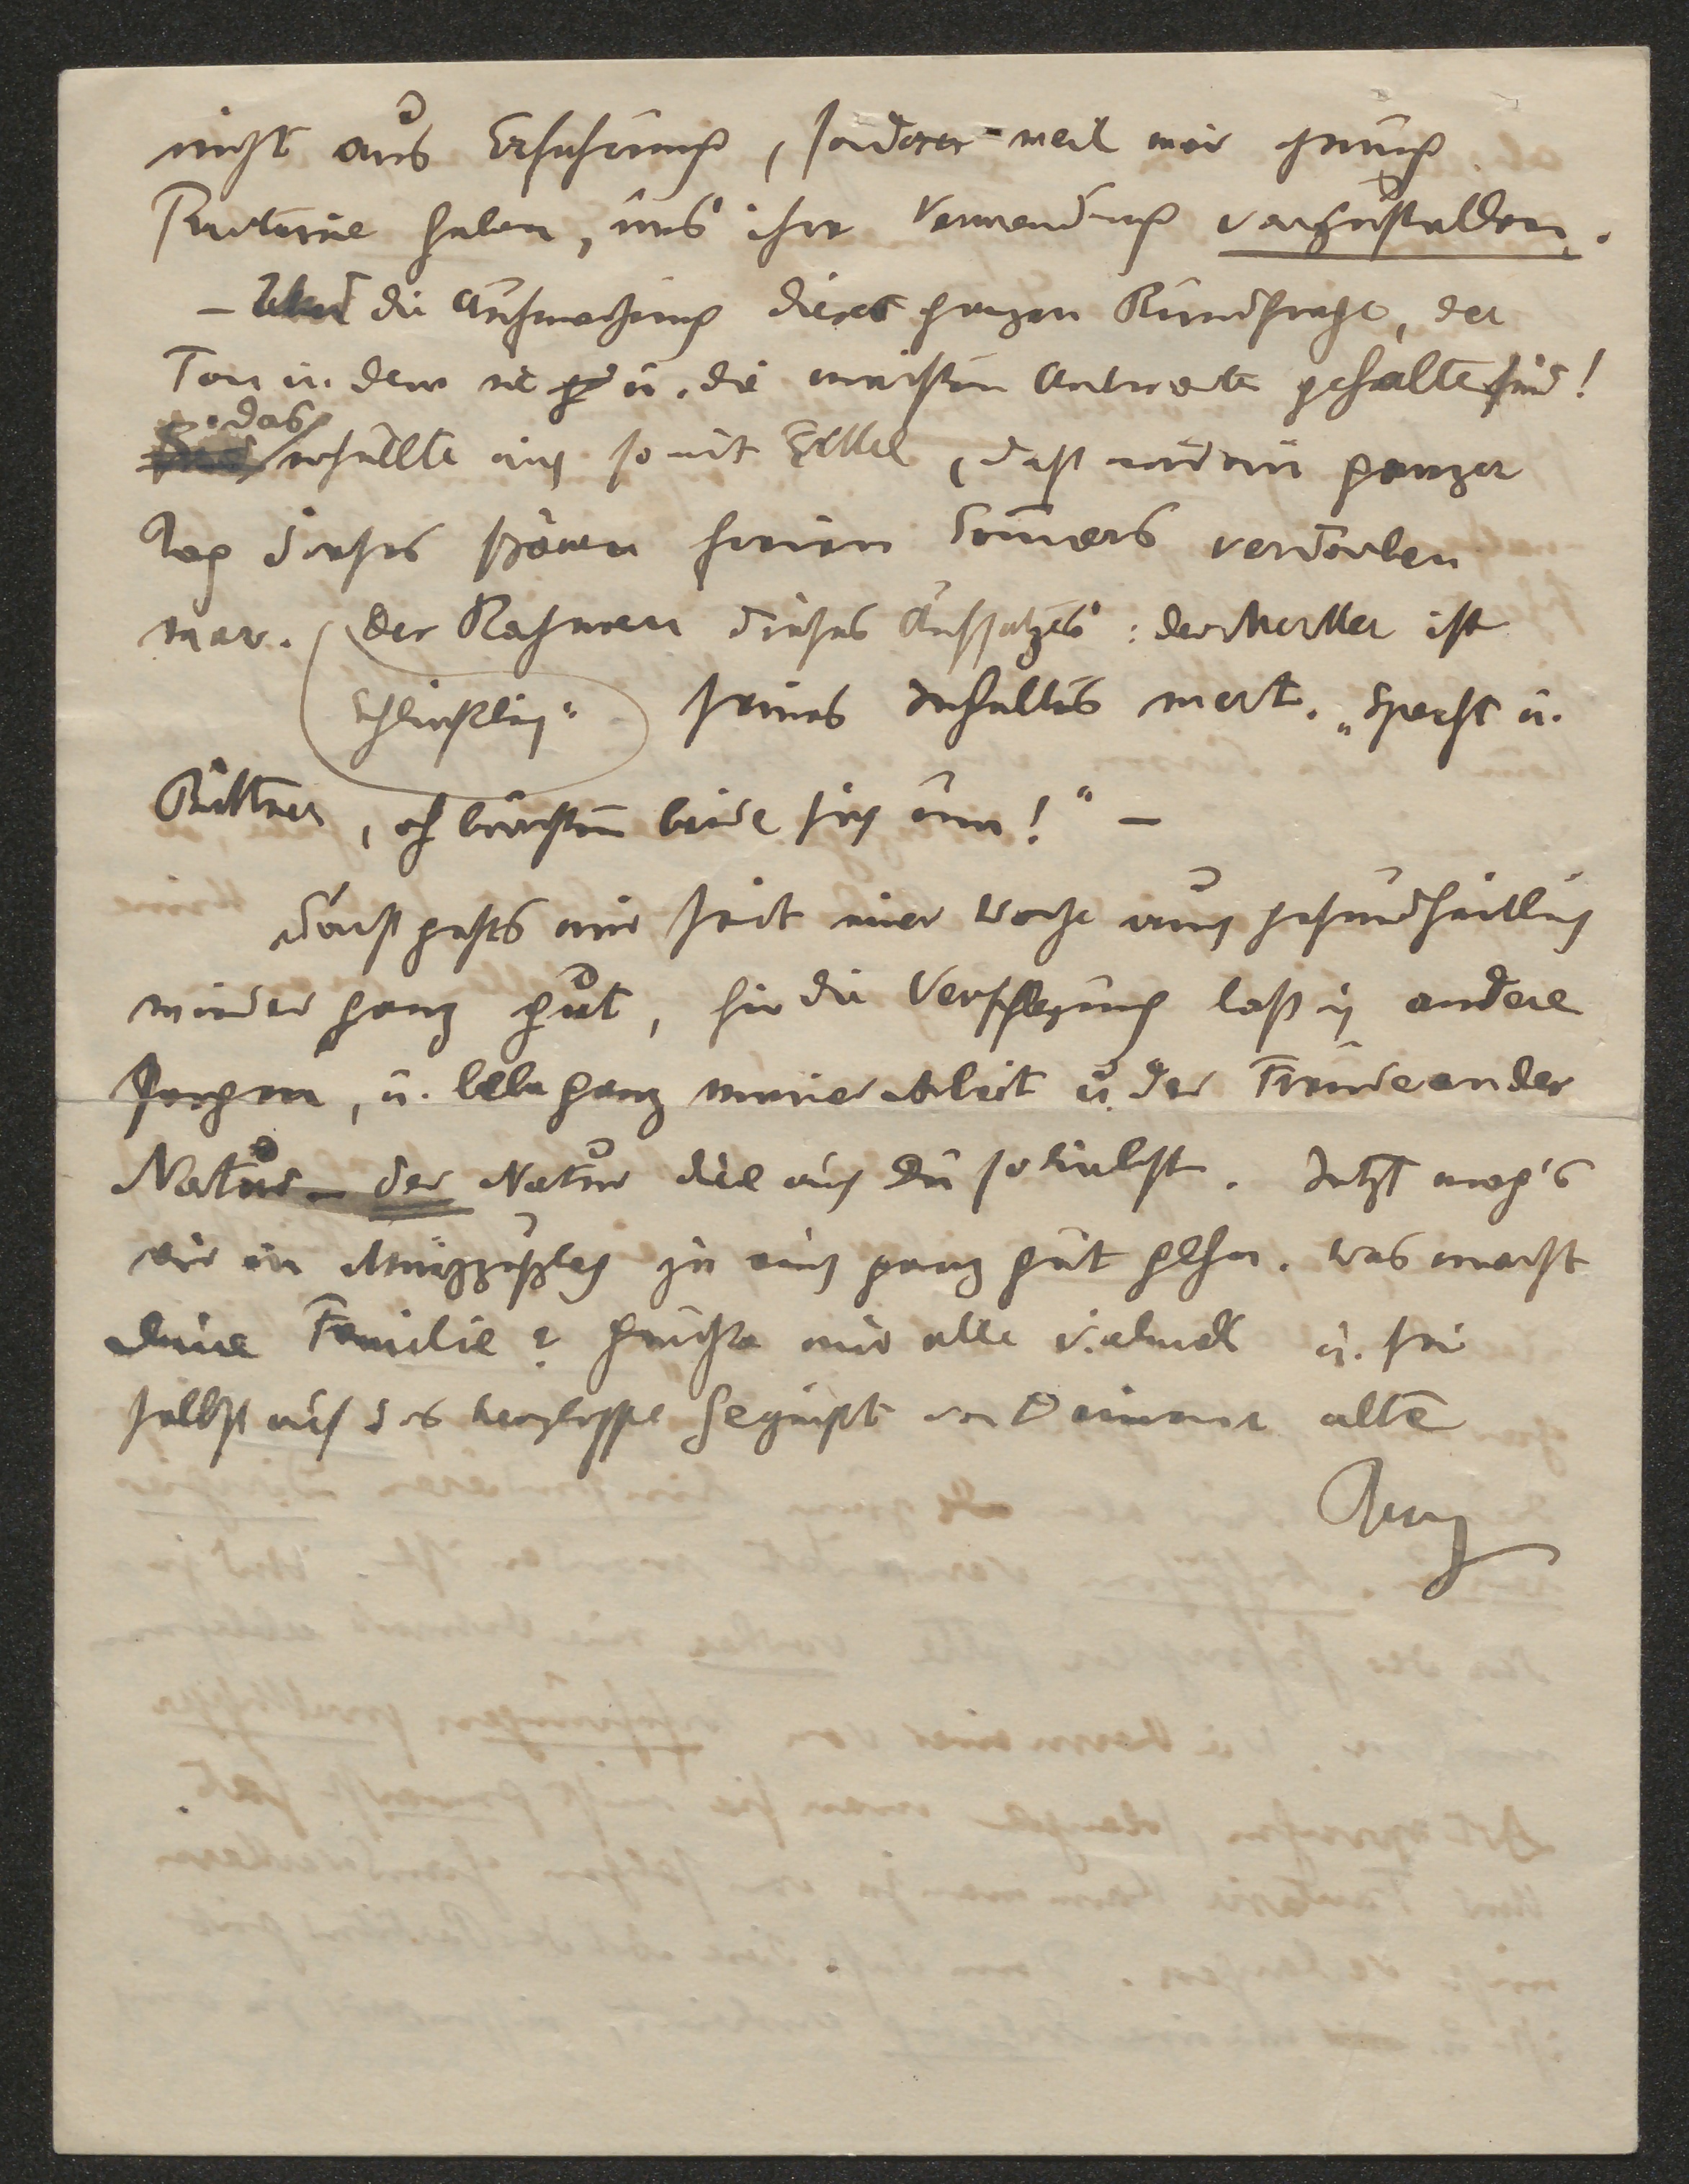 nicht aus Erfahrung, sondern weil wir genug
Phantasie haben, uns ihre Verwendung vorzustellen.
– Und die Aufmachung dieser ganzen Rundfrage, der
Ton in dem sie u. die meisten Antworten gehalten sind!
das erfüllte mich so mit Eckel, daß mir ein ganzer
Tag dieses schönen freien Sommers verdorben
war. Der Rahmen dieses Aufsatzes: der Merker ist
schließlich seines Inhaltes wert. „Specht u.
Büttner, es beide sich um!“ –
Sonst gehts mir seit einer Woche auch gesundheitlich
wieder ganz gut, für die Verpflegung laß ich andere
sorgen, u. lebe ganz meiner Arbeit u. der Freude an der
Natur – der Natur die auch Du so liebst. Jetzt mag's
wie in Mürzzuschlag ja auch ganz gut gehen. Was macht
deine Familie? grüße mir alle vielmals u. sei
selbst auf das herzlichste gegrüßt von Deinem alten